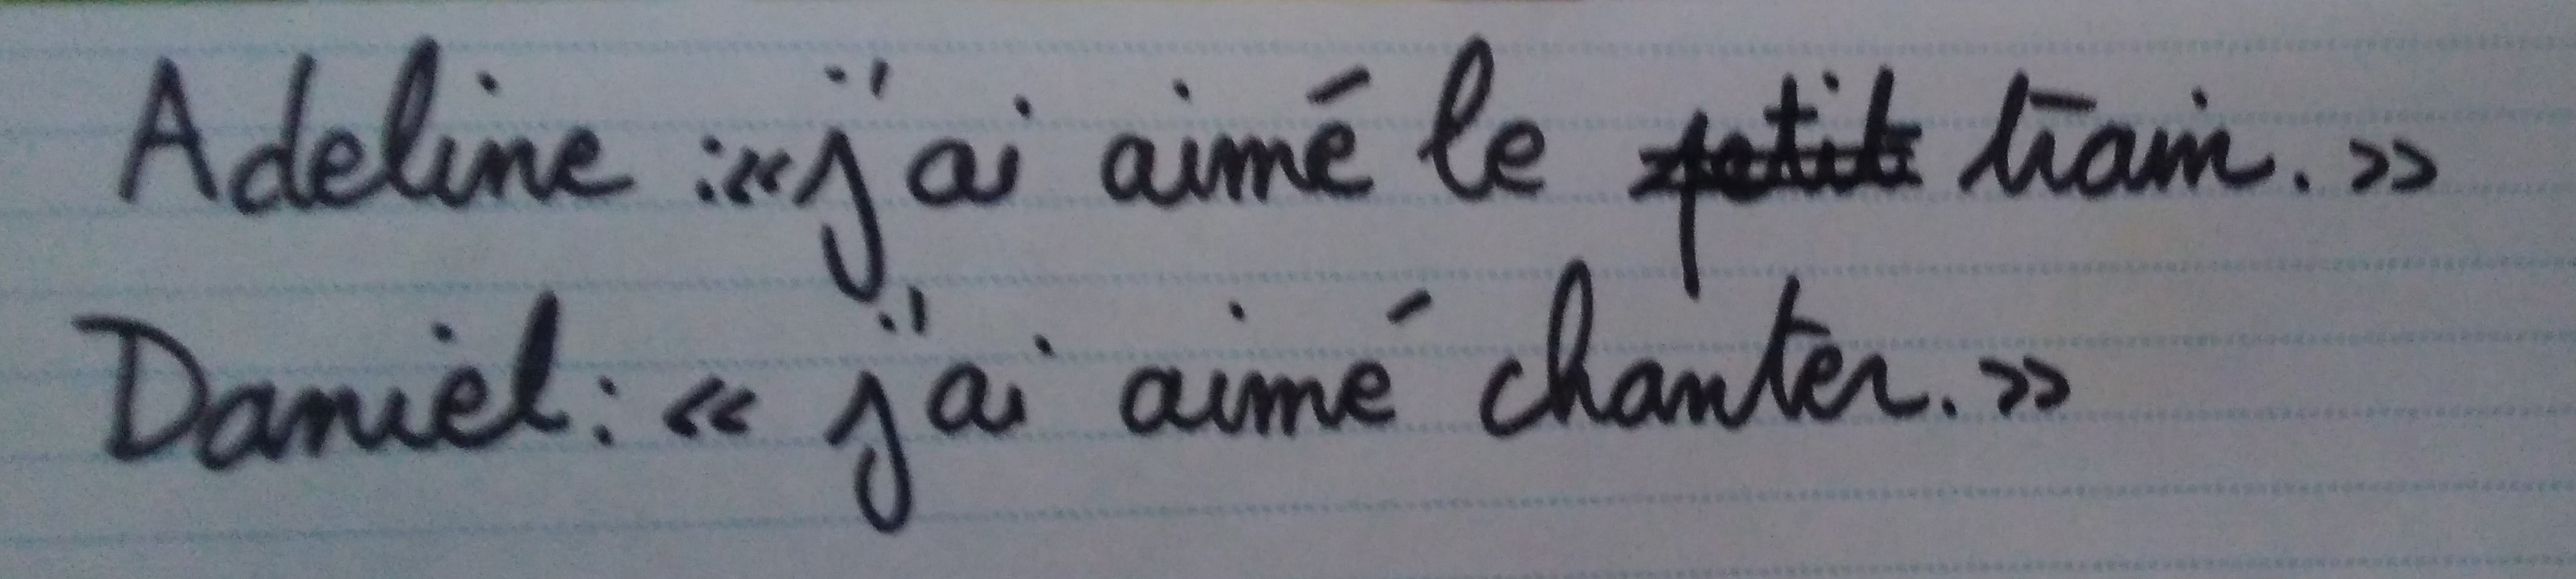 Adeline : « j'ai aimé le petit train. »
Daniel : « j'ai aimé chanter. »